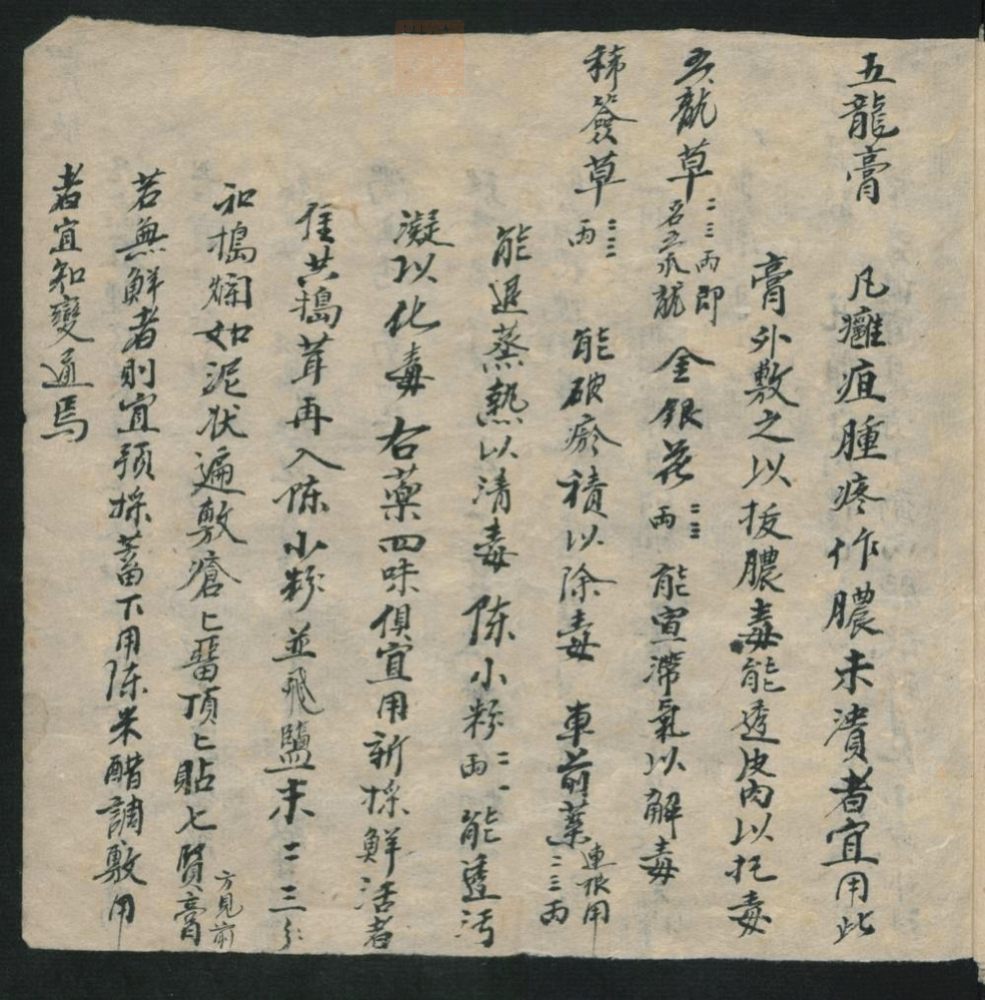 五龍膏　凡癰疽腫疼作膿未潰者宜用此
膏外敷之以拔膿毒能透皮肉以托毒
五龍草二三兩即名五爪龍　金銀花二三兩　能宣滯氣以解毒
豨薟草二三兩　能破瘀積以除毒　車前葉連根用二三兩
能退蒸熱以清毒　陳小粉二一兩　能透污
凝以化毒　右藥四味俱宜用新採鮮活者
隹共搗茸再入陳小粉並飛鹽末二三分
和搗爛如泥状遍敷瘡上畱頂上貼七賢膏方見前
若無鮮者則宜預採蓄下用陳米醋調敷用
者宜知變通焉